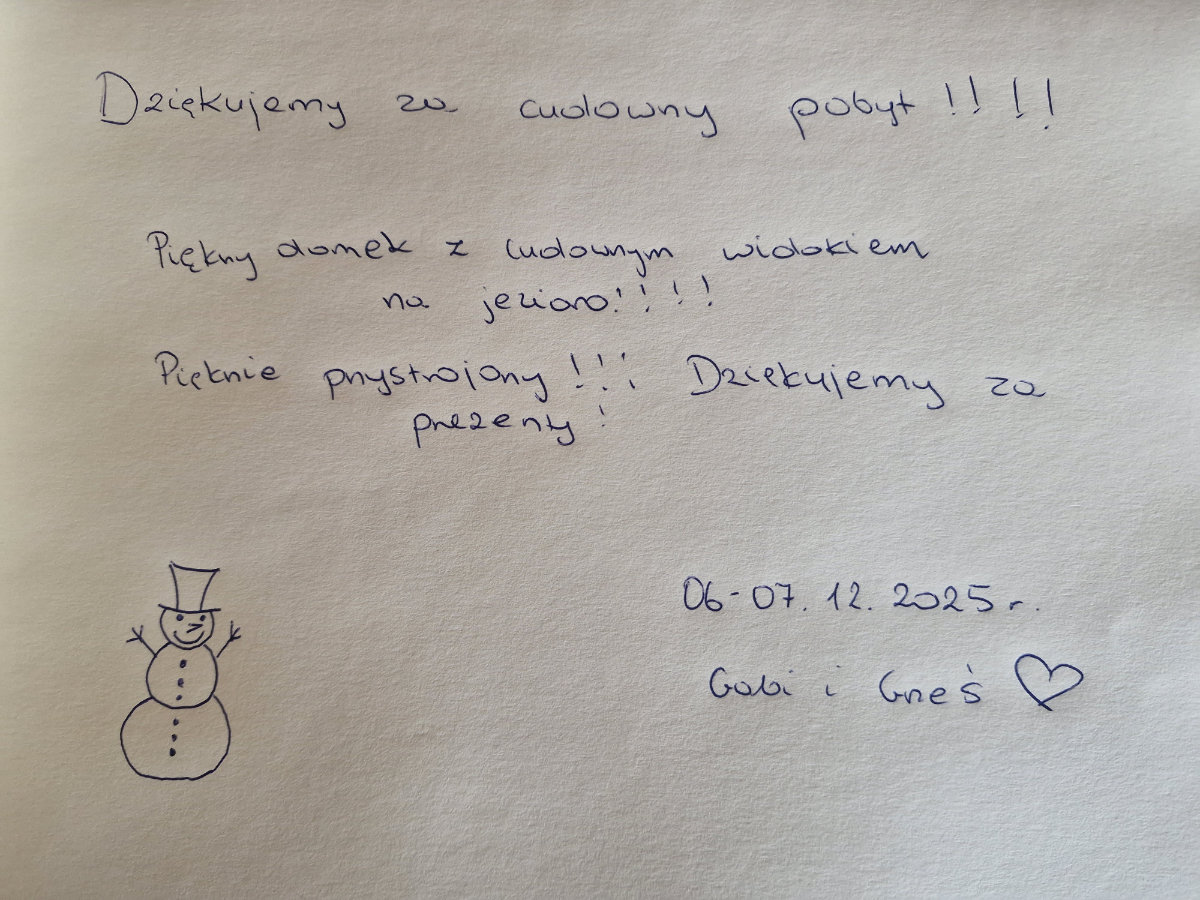 Dziękujemy za cudowny pobyt !!!!
Piękny domek z cudownym widokiem
na jezioro!!!!
Pięknie przystrojony !!! Dziękujemy za
prezenty!
06-07.12.2025 r.
Gabi i Grześ ♡